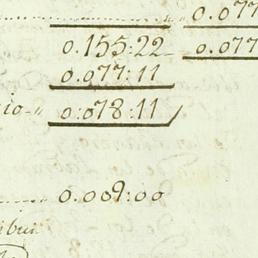 0.077
0.155:22 0.077
0.077:11
0:078:11
0.009:00